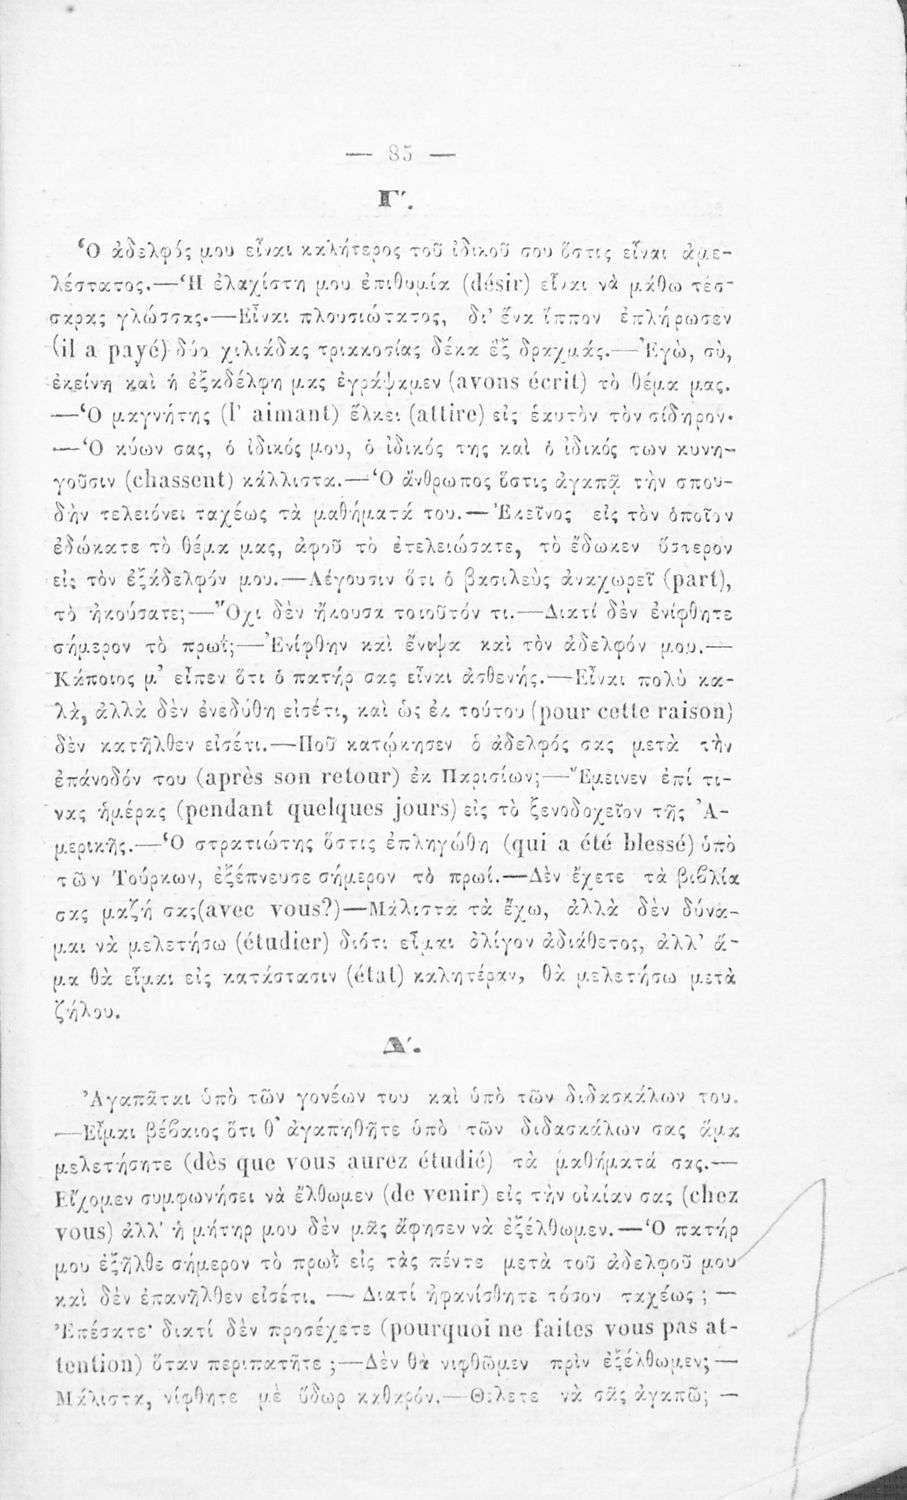 — 85 —
Γ΄.
Ὁ ἀδελφός μου εἶναι καλήτερος τοῦ ἰδικοῦ σου ὅστις εἶναι ἀμε-
λέστατος.—Ἡ ἐλαχίστη μου ἐπιθυμία (désir) εἶναι νὰ μάθω τέσ-
σαρας γλώσσας.—Εἶναι πλουσιώτατος, δι’ ἕνα ἵππον ἐπλήρωσεν
(il a payé) δύο χιλιάδας τριακοσίας δέκα ἓξ δραχμάς.—Ἐγὼ, σὺ,
ἐκείνη καὶ ἡ ἐξαδέλφη μας ἐγράψαμεν (avons écrit) τὸ θέμα μας.
—Ὁ μαγνήτης (l’ aimant) ἕλκει (attire) εἰς ἑαυτὸν τὸν σίδηρον.
—Ὁ κύων σας, ὁ ἰδικός μου, ὁ ἰδικός της καὶ ὁ ἰδικός των κυνη-
γοῦσιν (chassent) κάλλιστα.—Ὁ ἄνθρωπος ὅστις ἀγαπᾷ τὴν σπου-
δὴν τελειόνει ταχέως τὰ μαθήματά του.—Ἐκεῖνος εἰς τὸν ὁποῖον
ἐδώκατε τὸ θέμα μας, ἀφοῦ τὸ ἐτελειώσατε, τὸ ἔδωκεν ὕστερον
εἰς τὸν ἐξάδελφόν μου.—Λέγουσιν ὅτι ὁ βασιλεὺς ἀναχωρεῖ (part),
τὸ ἠκούσατε;—Ὄχι δὲν ἤκουσα τοιοῦτόν τι.—Διατί δὲν ἐνίφθητε
σήμερον τὸ πρωΐ;—Ἐνίφθην καὶ ἔνιψα καὶ τὸν ἀδελφόν μου.—
Κάποιος μ’ εἶπεν ὅτι ὁ πατήρ σας εἶναι ἀσθενής.—Εἶναι πολὺ κα-
λὰ, ἀλλὰ δὲν ἐνεδύθη εἰσέτι, καὶ ὡς ἐκ τούτου (pour cette raison)
δὲν κατῆλθεν εἰσέτι.—Ποῦ κατῴκησεν ὁ ἀδελφός σας μετὰ τὴν
ἐπάνοδόν του (après son retour) ἐκ Παρισίων;—Ἔμεινεν ἐπί τι-
νας ἡμέρας (pendant quelques jours) εἰς τὸ ξενοδοχεῖον τῆς Ἀ-
μερικῆς.—Ὁ στρατιώτης ὅστις ἐπληγώθη (qui a été blessé) ὑπὸ
τῶν Τούρκων, ἐξέπνευσε σήμερον τὸ πρωί.—Δὲν ἔχετε τὰ βιβλία
σας μαζή σας(avec vous?)—Μάλιστα τὰ ἔχω, ἀλλὰ δὲν δύνα-
μαι νὰ μελετήσω (étudier) διότι εἶμαι ὀλίγον ἀδιάθετος, ἀλλ’ ἅ-
μα θὰ εἶμαι εἰς κατάστασιν (état) καλητέραν, θὰ μελετήσω μετὰ
ζήλου.
Δ΄.
Ἀγαπᾶται ὑπὸ τῶν γονέων του καὶ ὑπὸ τῶν διδασκάλων του.
—Εἶμαι βέβαιος ὅτι θ’ ἀγαπηθῆτε ὑπὸ τῶν διδασκάλων σας ἅμα
μελετήσητε (dès que vous aurez étudié) τὰ μαθήματά σας.—
Εἴχομεν συμφωνήσει νὰ ἔλθωμεν (de venir) εἰς τὴν οἰκίαν σας (chez
vous) ἀλλ’ ἡ μήτηρ μου δὲν μᾶς ἄφησεν νὰ ἐξέλθωμεν.—Ὁ πατήρ
μου ἐξῆλθε σήμερον τὸ πρωῒ εἰς τὰς πέντε μετὰ τοῦ ἀδελφοῦ μου
καὶ δὲν ἐπανῆλθεν εἰσέτι. — Διατί ἠφανίσθητε τόσον ταχέως ; —
Ἐπέσατε· διατί δὲν προσέχετε (pourquoi ne faites vous pas at-
tention) ὅταν περιπατῆτε ;—Δὲν θὰ νιφθῶμεν πρὶν ἐξέλθωμεν;—
Μάλιστα, νίφθητε μὲ ὕδωρ καθαρόν.—Θέλετε νὰ σᾶς ἀγαπῶ; —